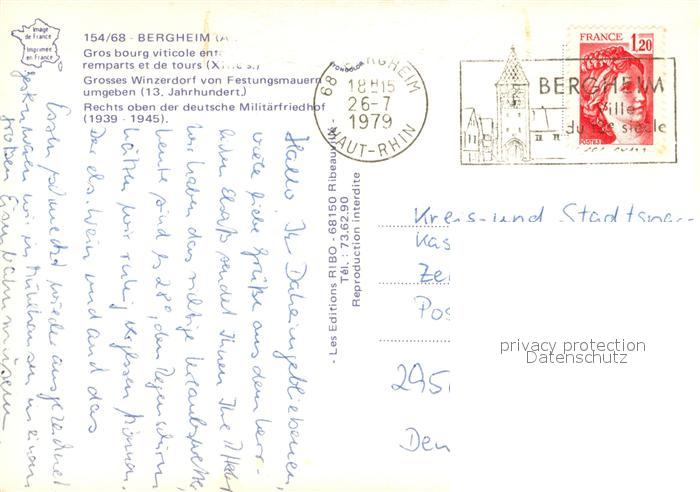 Image
de France
Imprimée
en France
154/68 - BERGHEIM
Gros bourg viticole
remparts et de tours
Grosses Winzerdorf von Festungsmauern
umgeben (13. Jahrhundert.)
Rechts oben der deutsche Militärfriedhof
(1939 - 1945).
68 BERGHEIM
18H15
26-7
1979
HAUT-RHIN
BERGHEIM
ville
du siècle
FRANCE
1,20
POSTES
- Les Editions RIBO - 68150 Ribeauvillé -
Tél. : 73.62.90
Reproduction interdite
Hallo Ihr Daheimgebliebenen,
viele liebe Grüße aus dem herr-
lichen Elsaß sendet Ihnen Ihre
Wir haben das richtige Urlaubswetter,
heute sind es 28°, den Regenschirm
hätten wir ruhig vergessen können.
Der Wein und auch das
Essen schmeckt wieder ausgezeichnet
gestern waren wir in Mülhausen in einem
großen Eisenbahnmuseum.
Kreis- und Stadtspar-
Kas
Ze
Pos
295
Den
privacy protection
Datenschutz